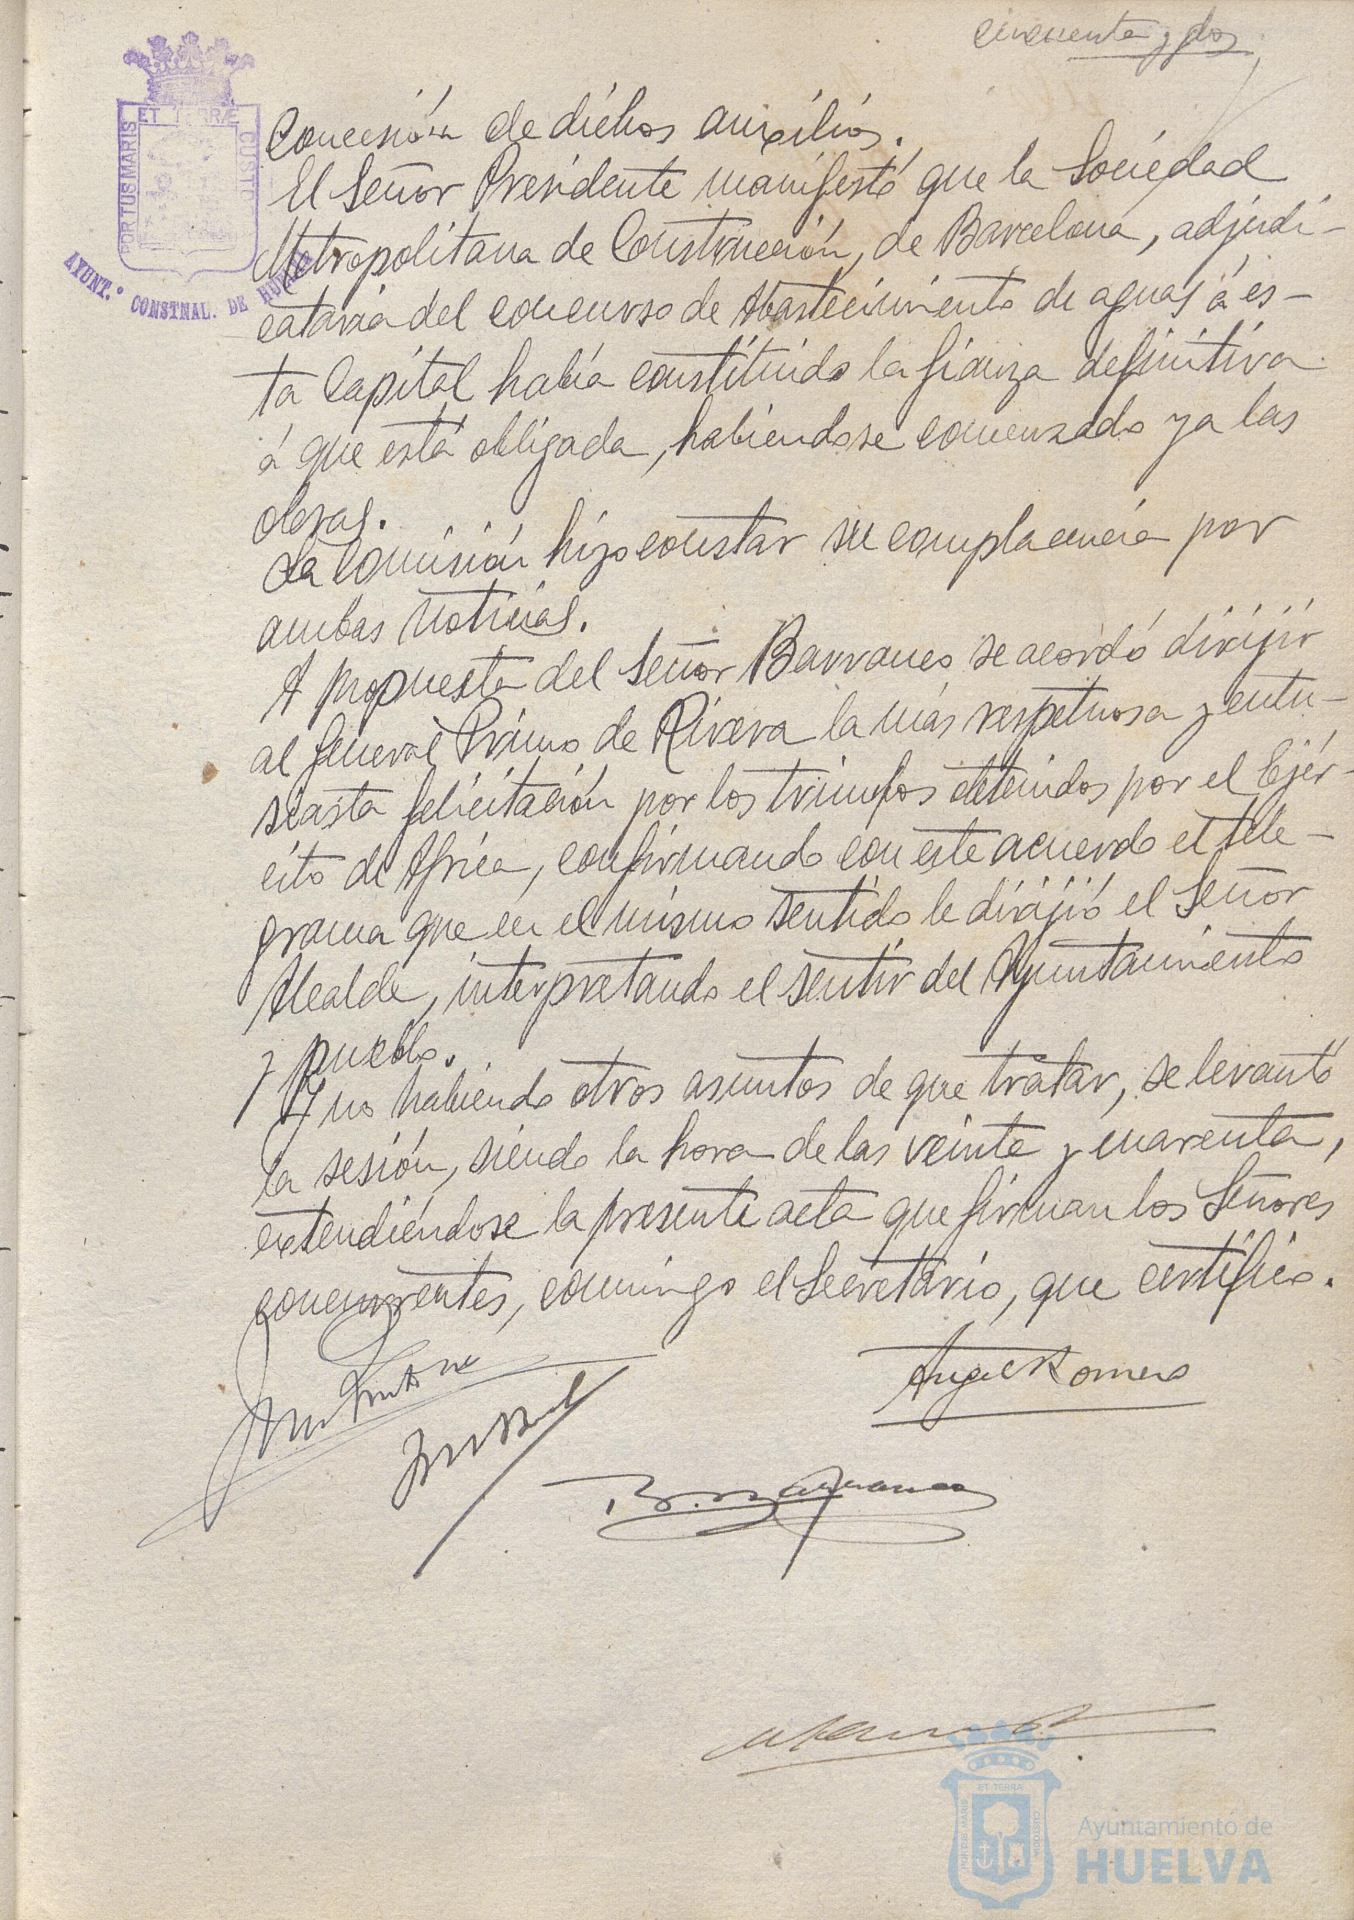 cincuenta y dos
PORTUS MARIS ET TERRÆ CUSTO
AYUNT.º CONSTNAL. DE HUELVA
Concesión de dichos auxilios.
El Señor Presidente manifestó que la Sociedad
Metropolitana de Construcción, de Barcelona, adjudi-
cataria del concurso de Abastecimiento de aguas á es-
ta Capital había constituido la fianza definitiva
á que está obligada, habiendose comenzado ya las
obras.
La Comisión hizo constar su complacencia por
ambas noticias.
A propuesta del Señor Barranco se acordó dirijir
al General Primo de Rivera la más respetuosa y entu-
siasta felicitación por los triunfos obtenidos por el Ejér-
cito de Africa, confirmando con este acuerdo el tele-
grama que en el mismo sentido le dirijió el Señor
Alcalde, interpretando el sentir del Ayuntamiento
y pueblo.
Y no habiendo otros asuntos de que tratar, se levantó
la sesión, siendo la hora de las veinte y cuarenta,
extendiéndose la presente acta que firman los Señores
concurrentes, conmigo el Secretario, que certifico.
Angel Romero
B. Barranco
ET TERRA
PORTUS MARIS
CUSTODIA
Ayuntamiento de
HUELVA